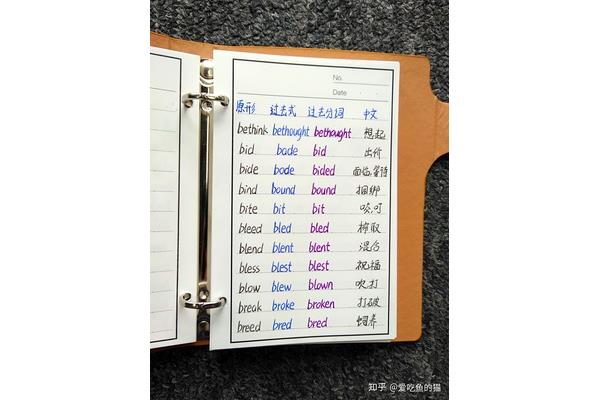 No.
Date
原形 过去式 过去分词 中文
bethink bethought bethought 想起
bid bade bid 出价
bide bode bided 面临,等待
bind bound bound 捆绑
bite bit bit 咬,叮
bleed bled bled 榨取
blend blent blent 混合
bless blest blest 祝福
blow blew blown 吹,打
break broke broken 打破
breed bred bred 饲养
知乎 @爱吃鱼的猫